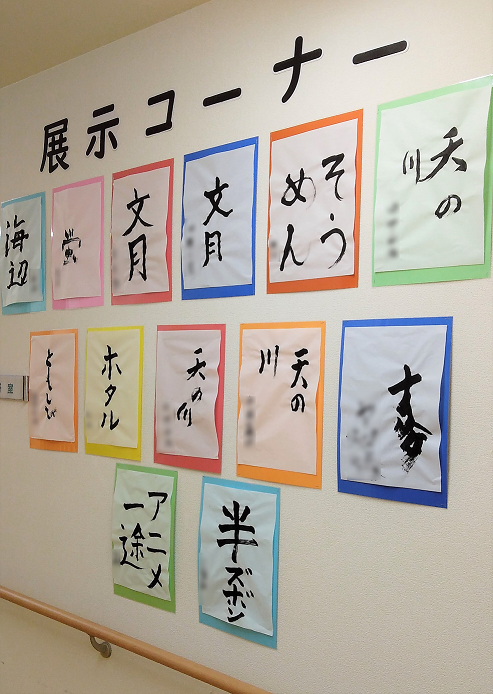 展示コーナー
海辺
蛍
文月
文月
そう
めん
天の
川
ともしび
ホタル
天の川
天の
川
アニメ
一途
半ズボン